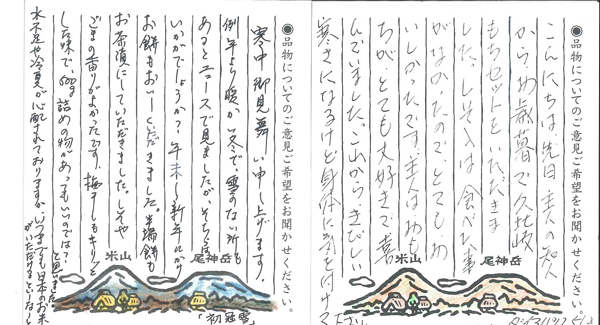 ●品物についてのご意見ご希望をお聞かせください。
こんにちは 先日主人の知人
からお歳暮で久比岐
もちセットをいただきま
した。しそ入は食べた事
がなかったので、とてもお
いしかったです。主人はおも
ちが、とても大好きで喜
んでいました。これから、きびしい
寒さになるけど身体に気を付けて
ください
尾神岳
米山
●品物についてのご意見ご希望をお聞かせください。
寒中御見舞い申し上げます。
例年より暖か冬で雪のない所も
あるとニュースで見ましたが、そちらは
いかがでしょうか？年末〜新年にかけ
お餅もおいしくいただきました。半端餅も
お茶漬にしていただきました。しそや
ごまの香りがよかったです。梅干しもキリッと
した味で、500g詰めの物があってもいいのでは？
と思いました。
水不足や冷夏が心配されておりますが、いつまでも日本のお米
がいただけるといいなーと
尾神岳
米山
「初冠雪」